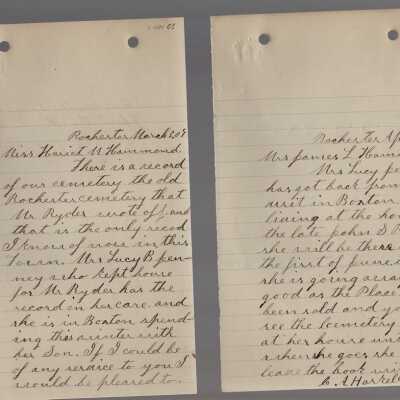 Rochester March 5 07
Miss Hariet W Hammond
There is a record
of our cemetery the old
Rochester cemetery that
Mr Ryder wrote of and
that is the only recod
I know of now in this
town. Mrs Lucy B pen-
ney who kept house
for Mr Ryder has the
record in her care and
she is in Boston spend
ing this winter with
her Son. If I could be
of any service to you I
would be pleased to.
Rochester Ap
Mrs James L Ham
Mrs Lucy pe
has got back from
in Boston
living at the ho
the late John D R
she will be there
the first of june.
she is going
good as the Place
been sold and yo
see the Cemetery
at her house unti
when she goes she
leave the book wi
C. A Haskel